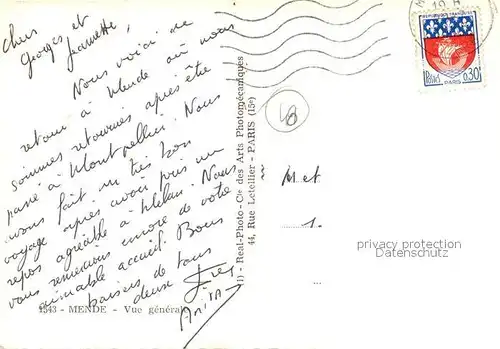 Chers
Georges et
Jeannette,
Nous voici de
retour à Mende où nous
sommes retournés après être
passé à Montpellier. Nous
avons fait un très bon
voyage après avoir pris un
repos agréable à Melun. Nous
vous remercions encore de votre
aimable accueil. Bons
baisers de tous
deux
Anita
1343 - MENDE - Vue générale
Real-Photo - Cie des Arts Photomécaniques
44, Rue Letellier - PARIS (15e)
M et
1.
REPUBLIQUE FRANÇAISE
POSTES
0,30
PARIS
privacy protection
Datenschutz